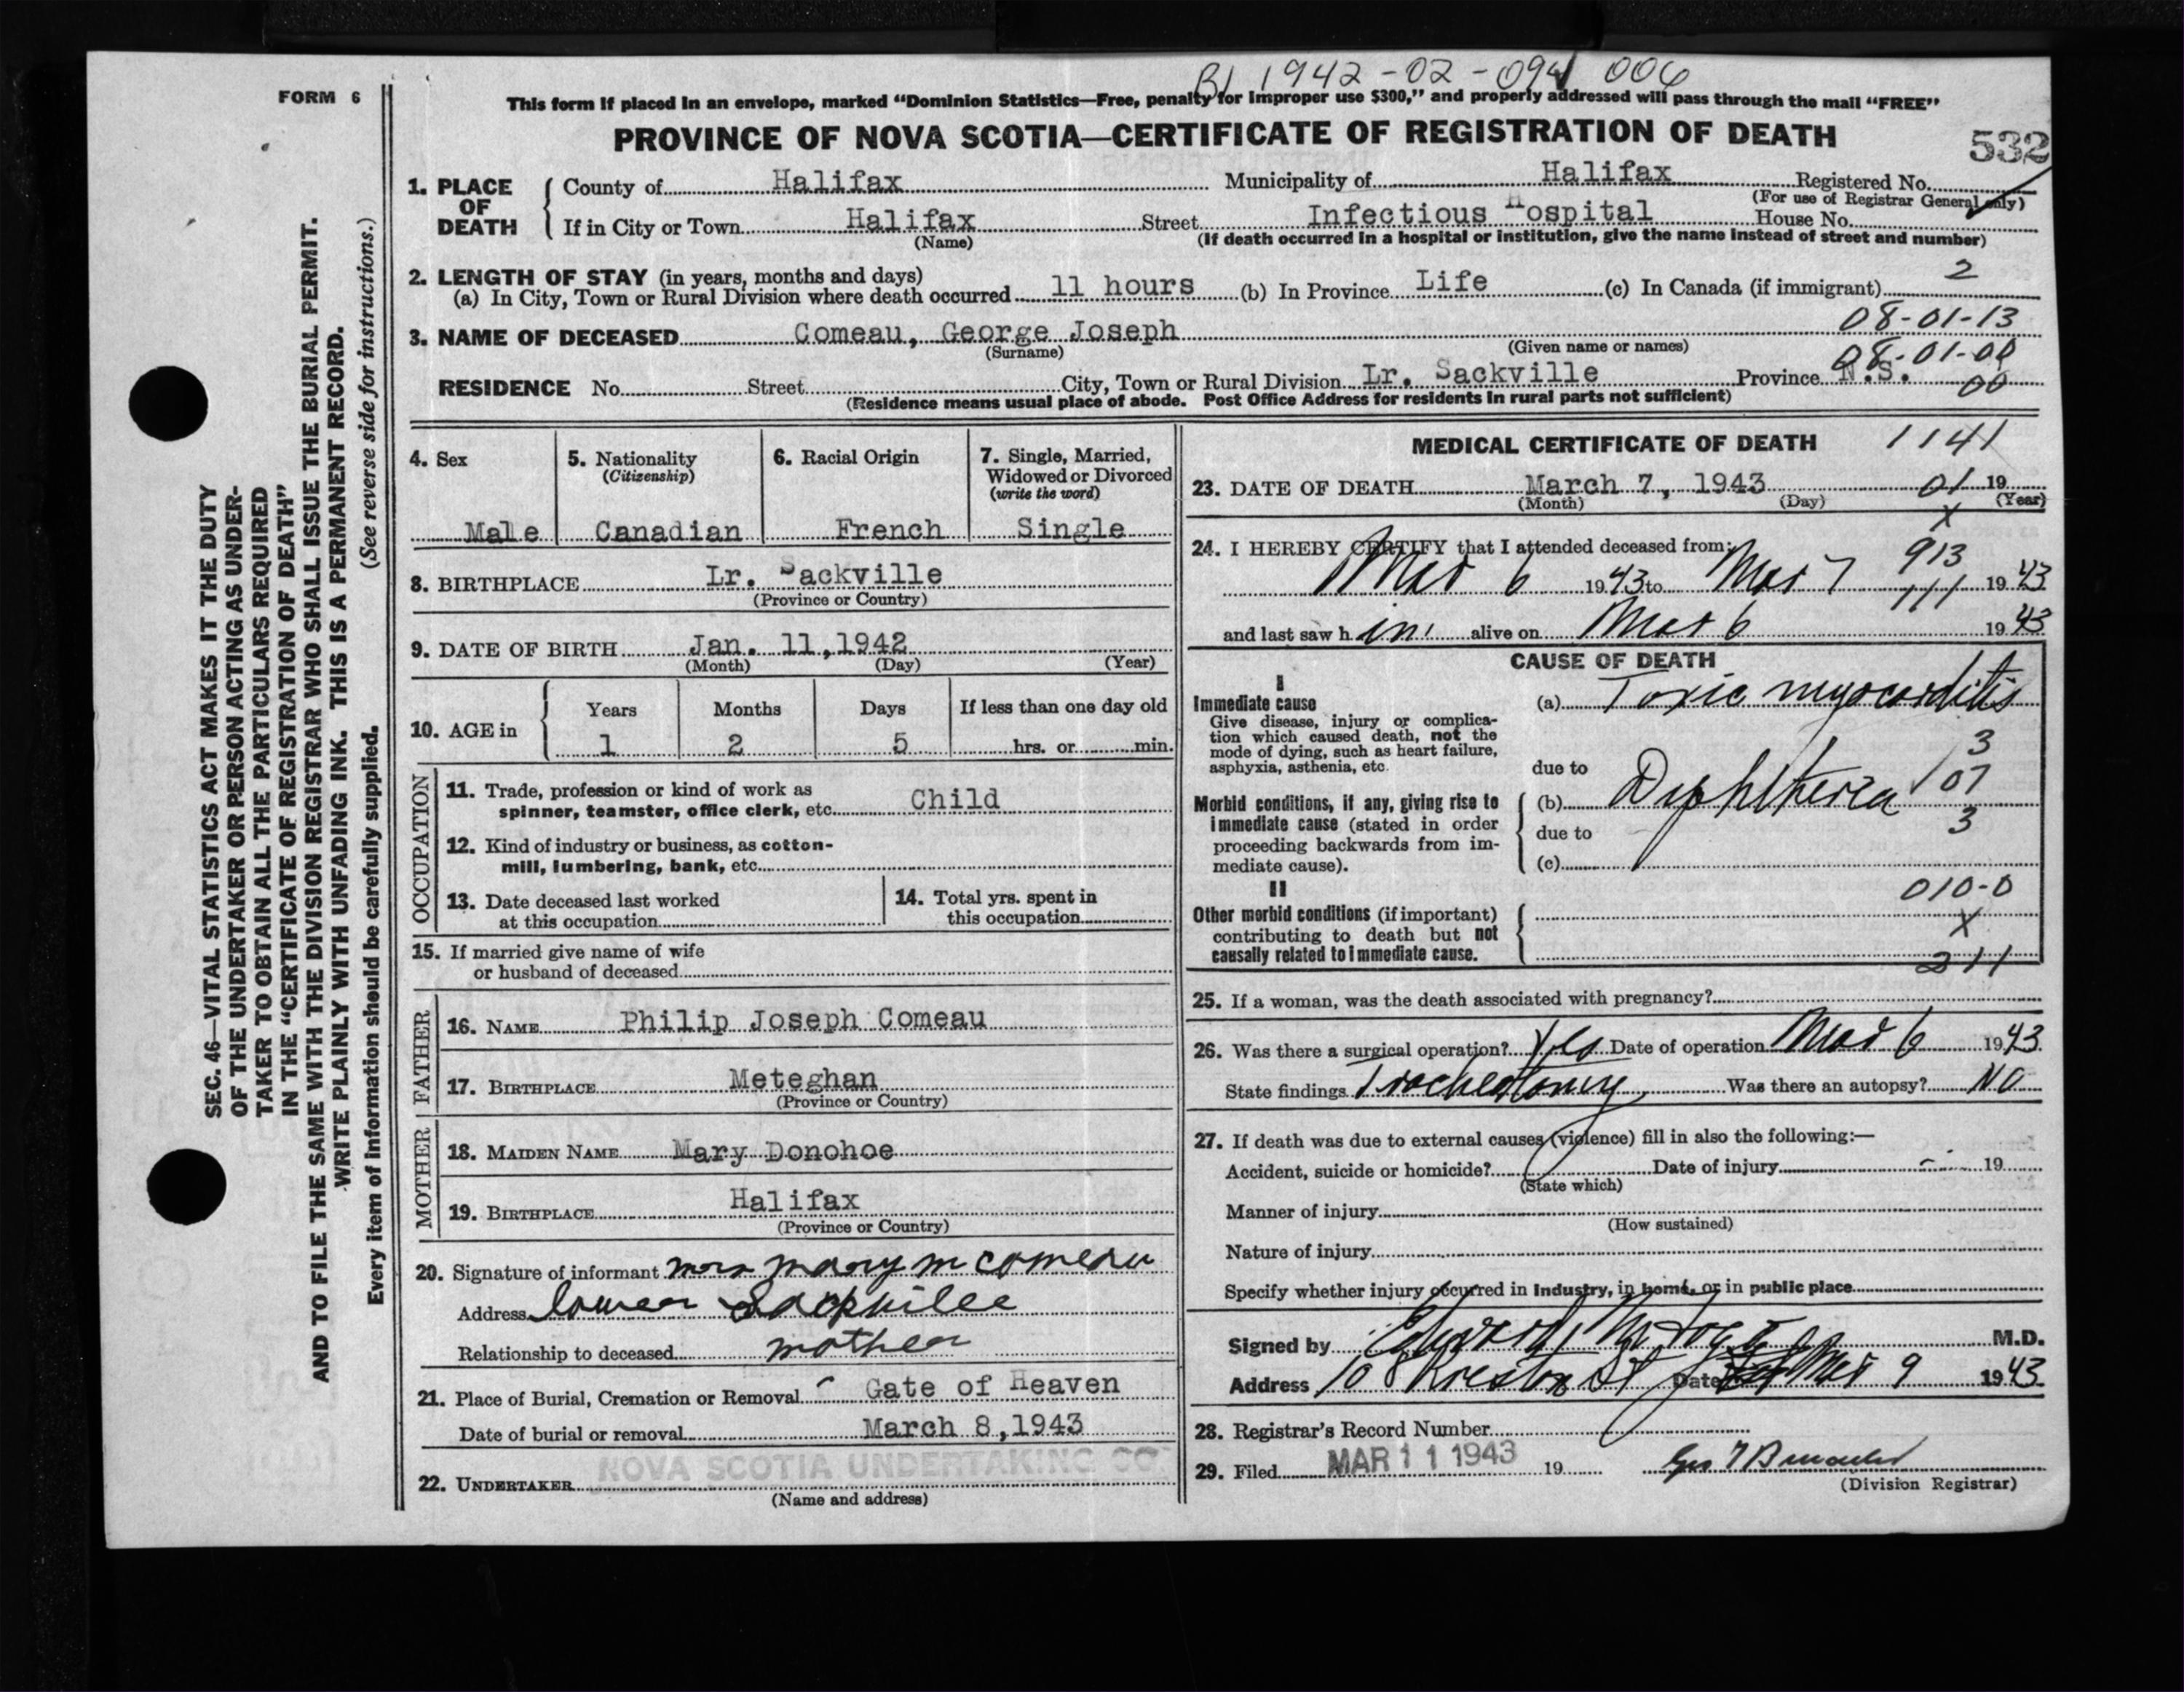 B) 1942-02-094 006
FORM 6
This form if placed in an envelope, marked “Dominion Statistics—Free, penalty for improper use $300,” and properly addressed will pass through the mail “FREE”
PROVINCE OF NOVA SCOTIA—CERTIFICATE OF REGISTRATION OF DEATH
532
1. PLACE OF DEATH
County of Halifax Municipality of Halifax Registered No.
(For use of Registrar General only)
If in City or Town Halifax Street Infectious Hospital House No.
(Name) (If death occurred in a hospital or institution, give the name instead of street and number)
2. LENGTH OF STAY (in years, months and days) 2
(a) In City, Town or Rural Division where death occurred 11 hours (b) In Province Life (c) In Canada (if immigrant)
08-01-13
3. NAME OF DECEASED Comeau, George Joseph
(Surname) (Given name or names)
08-01-00
RESIDENCE No. Street City, Town or Rural Division Lr. Sackville Province N.S. 00
(Residence means usual place of abode. Post Office Address for residents in rural parts not sufficient)
SEC. 46—VITAL STATISTICS ACT MAKES IT THE DUTY
OF THE UNDERTAKER OR PERSON ACTING AS UNDER-
TAKER TO OBTAIN ALL THE PARTICULARS REQUIRED
IN THE “CERTIFICATE OF REGISTRATION OF DEATH”
AND TO FILE THE SAME WITH THE DIVISION REGISTRAR WHO SHALL ISSUE THE BURIAL PERMIT.
WRITE PLAINLY WITH UNFADING INK. THIS IS A PERMANENT RECORD.
Every item of information should be carefully supplied. (See reverse side for instructions.)
4. Sex
Male
5. Nationality
(Citizenship)
Canadian
6. Racial Origin
French
7. Single, Married,
Widowed or Divorced
(write the word)
Single
8. BIRTHPLACE Lr. Sackville
(Province or Country)
9. DATE OF BIRTH Jan. 11,1942
(Month) (Day) (Year)
10. AGE in
Years Months Days If less than one day old
1 2 5 hrs. or min.
OCCUPATION
11. Trade, profession or kind of work as
spinner, teamster, office clerk, etc. Child
12. Kind of industry or business, as cotton-
mill, lumbering, bank, etc.
13. Date deceased last worked
at this occupation
14. Total yrs. spent in
this occupation
15. If married give name of wife
or husband of deceased
FATHER
16. NAME Philip Joseph Comeau
17. BIRTHPLACE Meteghan
(Province or Country)
MOTHER
18. MAIDEN NAME Mary Donohoe
19. BIRTHPLACE Halifax
(Province or Country)
20. Signature of informant mrs mary m comeau
Address lower Sackville
Relationship to deceased mother
21. Place of Burial, Cremation or Removal Gate of Heaven
Date of burial or removal March 8,1943
22. UNDERTAKER NOVA SCOTIA UNDERTAKING CO
(Name and address)
MEDICAL CERTIFICATE OF DEATH 1141
23. DATE OF DEATH March 7, 1943 01 19
(Month) (Day) (Year)
X
24. I HEREBY CERTIFY that I attended deceased from: 913
Mar 6 1943 to Mar 7 111 1943
and last saw h im alive on Mar 6 1943
CAUSE OF DEATH
I
Immediate cause
Give disease, injury or complica-
tion which caused death, not the
mode of dying, such as heart failure,
asphyxia, asthenia, etc.
(a) Toxic myocarditis
3
due to
Morbid conditions, if any, giving rise to
immediate cause (stated in order
proceeding backwards from im-
mediate cause).
(b) Diphtheria 07
due to 3
(c)
II 010-0
Other morbid conditions (if important)
contributing to death but not
causally related to immediate cause.
X
211
25. If a woman, was the death associated with pregnancy?
26. Was there a surgical operation? Yes Date of operation Mar 6 1943
State findings Tracheotomy Was there an autopsy? NO
27. If death was due to external causes (violence) fill in also the following:—
Accident, suicide or homicide? Date of injury 19
(State which)
Manner of injury
(How sustained)
Nature of injury
Specify whether injury occurred in Industry, in home, or in public place
Signed by M.D.
Address 108 St Date Mar 9 1943
28. Registrar's Record Number
29. Filed MAR 11 1943 19
(Division Registrar)